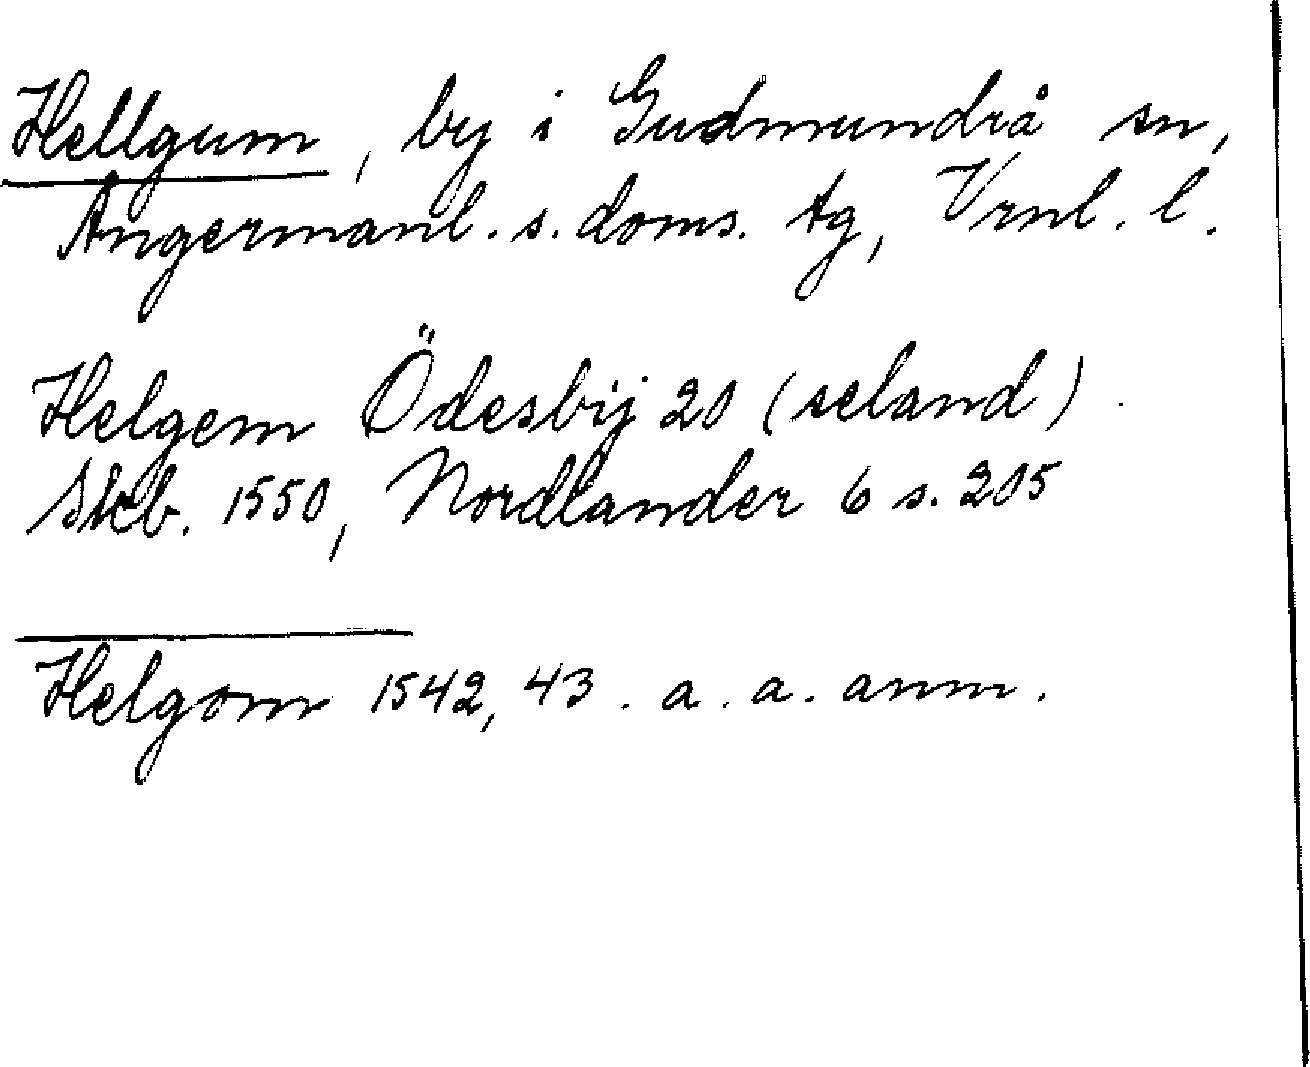 Hellgum, by i Gudmundrå sn,
Ångermanl. s. doms. tg, Vrnl. l.
Helgem Ödesbÿ 20 (seland)
Skb. 1550, Nordlander 6 s. 205
Helgom 1542, 43. a. a. anm.